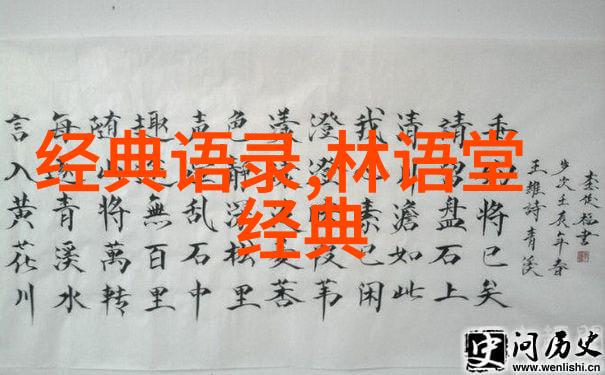 言入黄花川
每青溪水
随将萬转
趣無百里
声乱石中
色静深松里
漾荇
澄映葭苇
我素已闲
清澹如此
请盘石上
垂将已矣
王維詩青溪
岁次壬辰年春
经典语录,林语堂
经典
问历史
www.wenlishi.cn